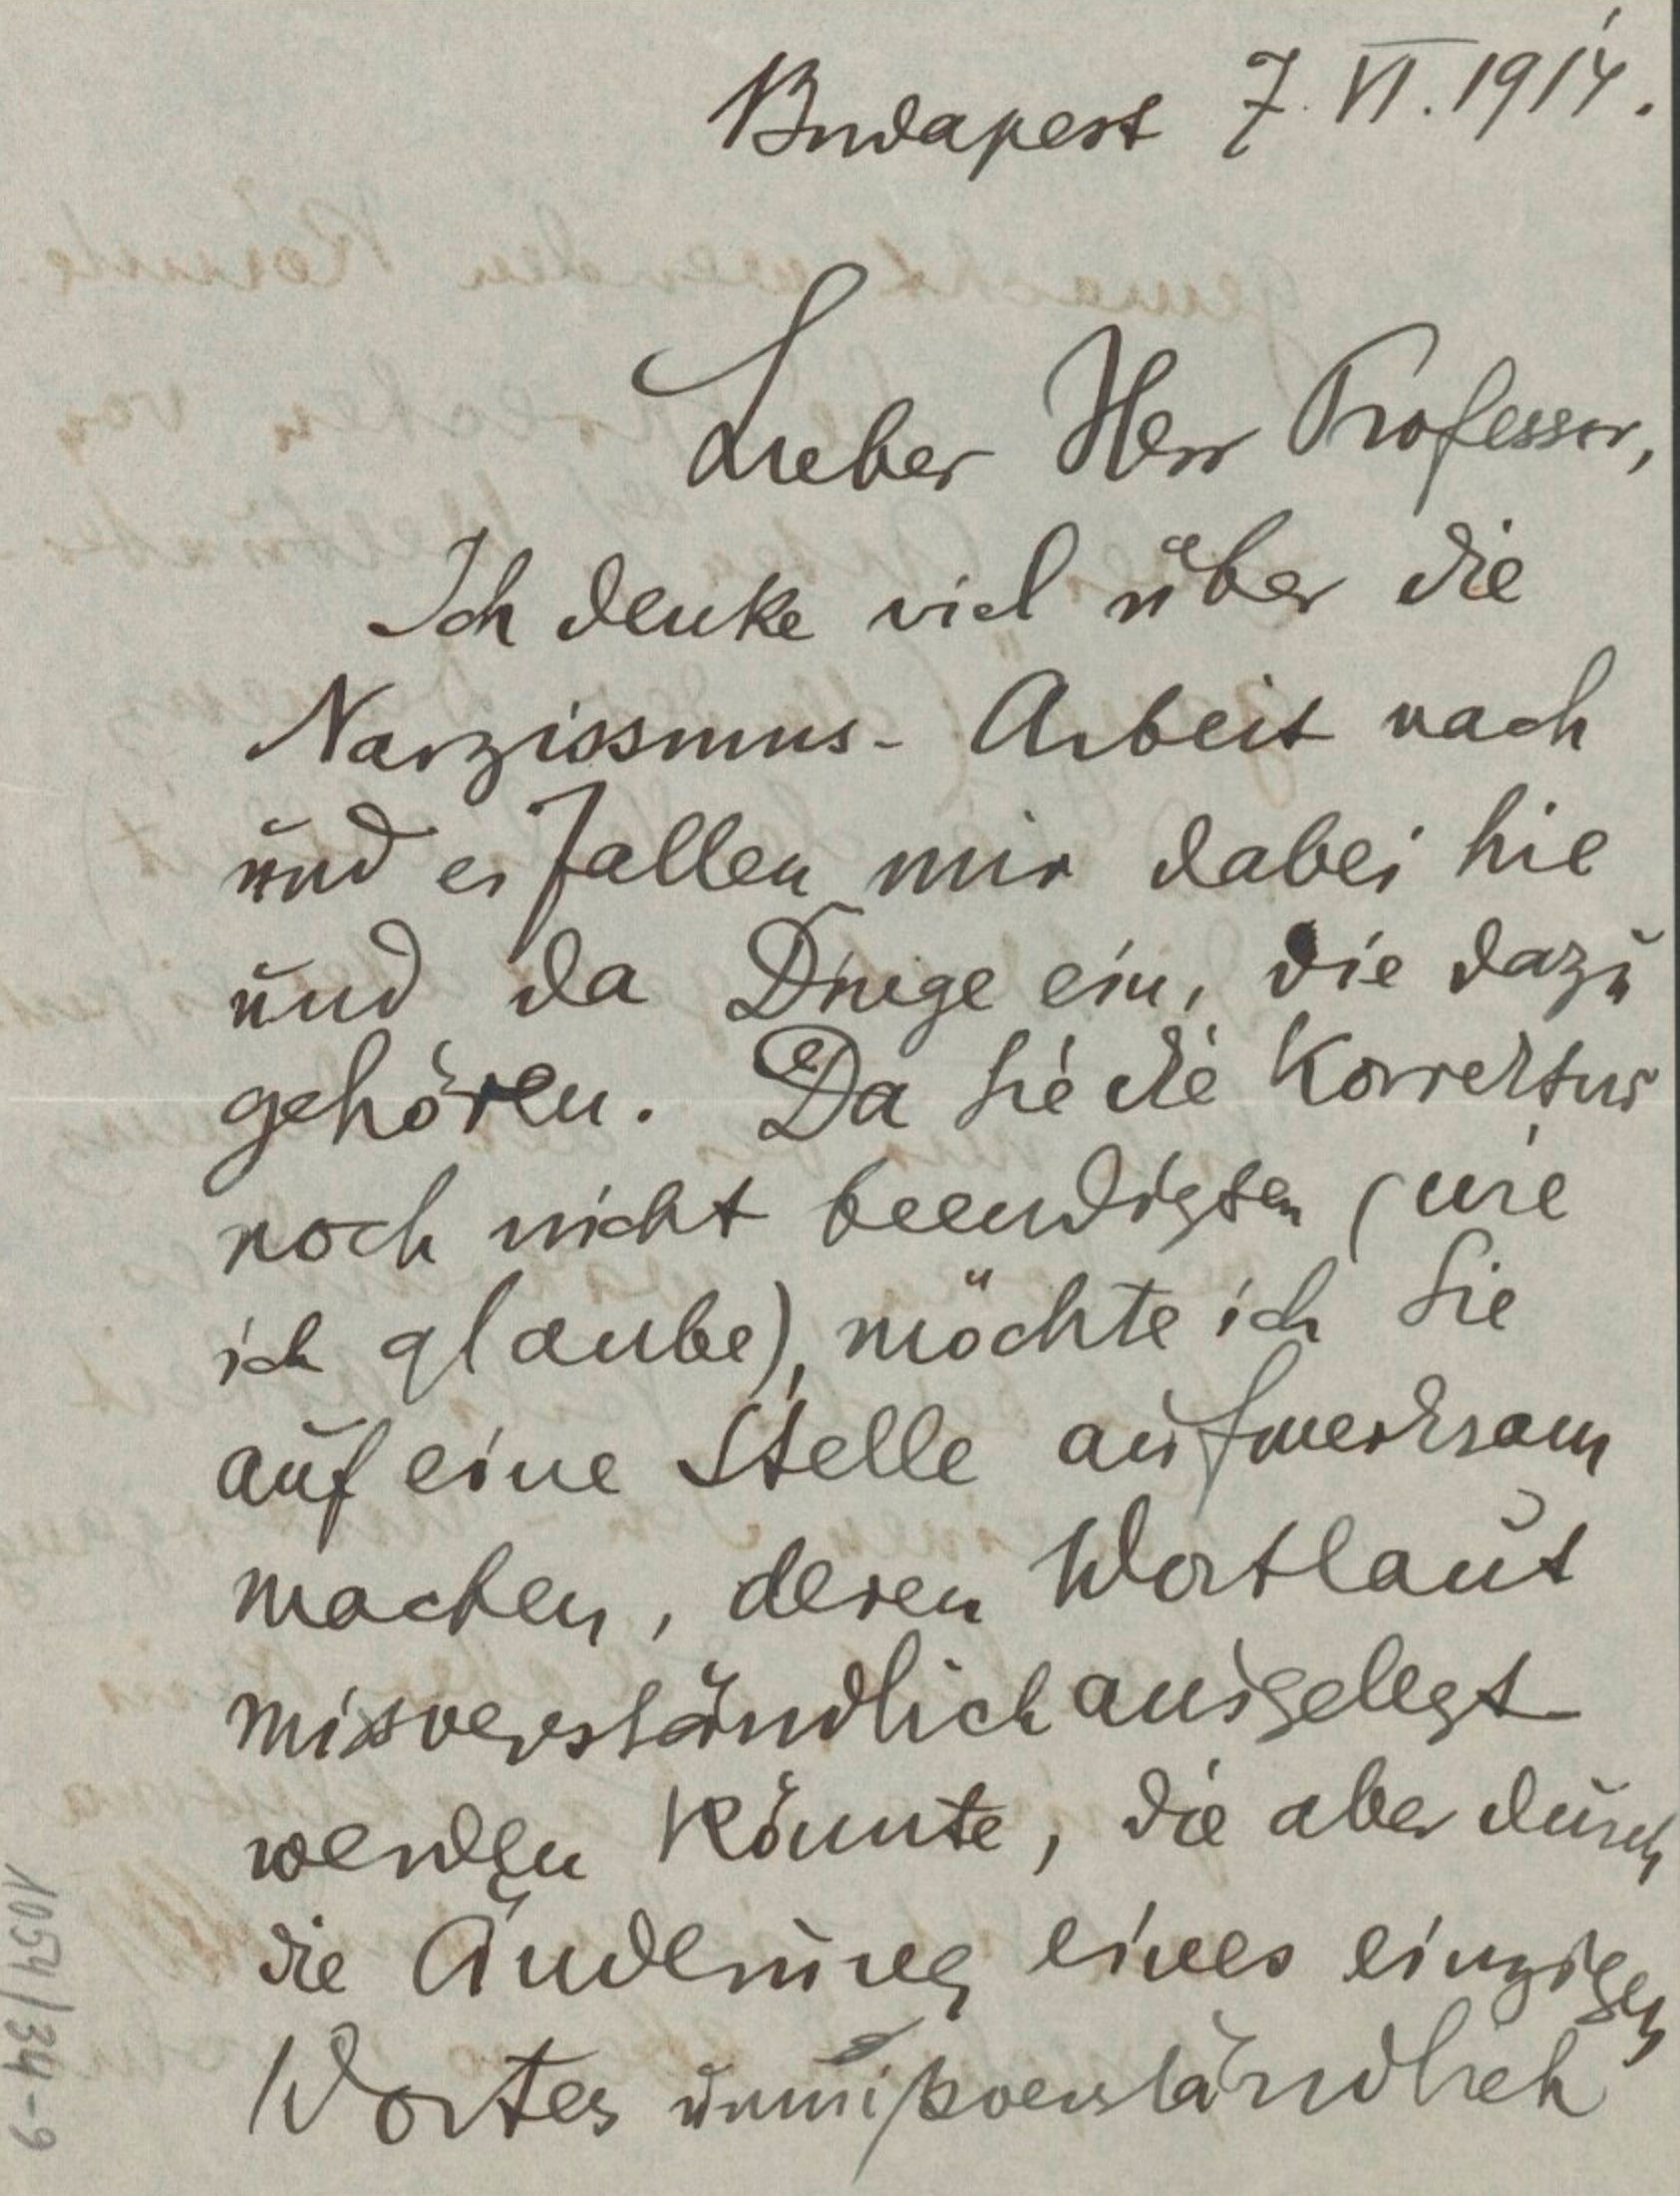 Budapest 7. VI. 1914.
Lieber Herr Professor,
Ich denke viel über die
Narzissmus- Arbeit nach
und es fallen mir dabei hie
und da Dinge ein, die dazu
gehören. Da Sie die Korrektur
noch nicht beendigten (wie
ich glaube), möchte ich Sie
auf eine Stelle aufmerksam
machen, deren Wortlaut
misverständlich ausgelegt
werden könnte, die aber durch
die Änderung eines einzigen
Wortes unmißverständlich
1054/34-9